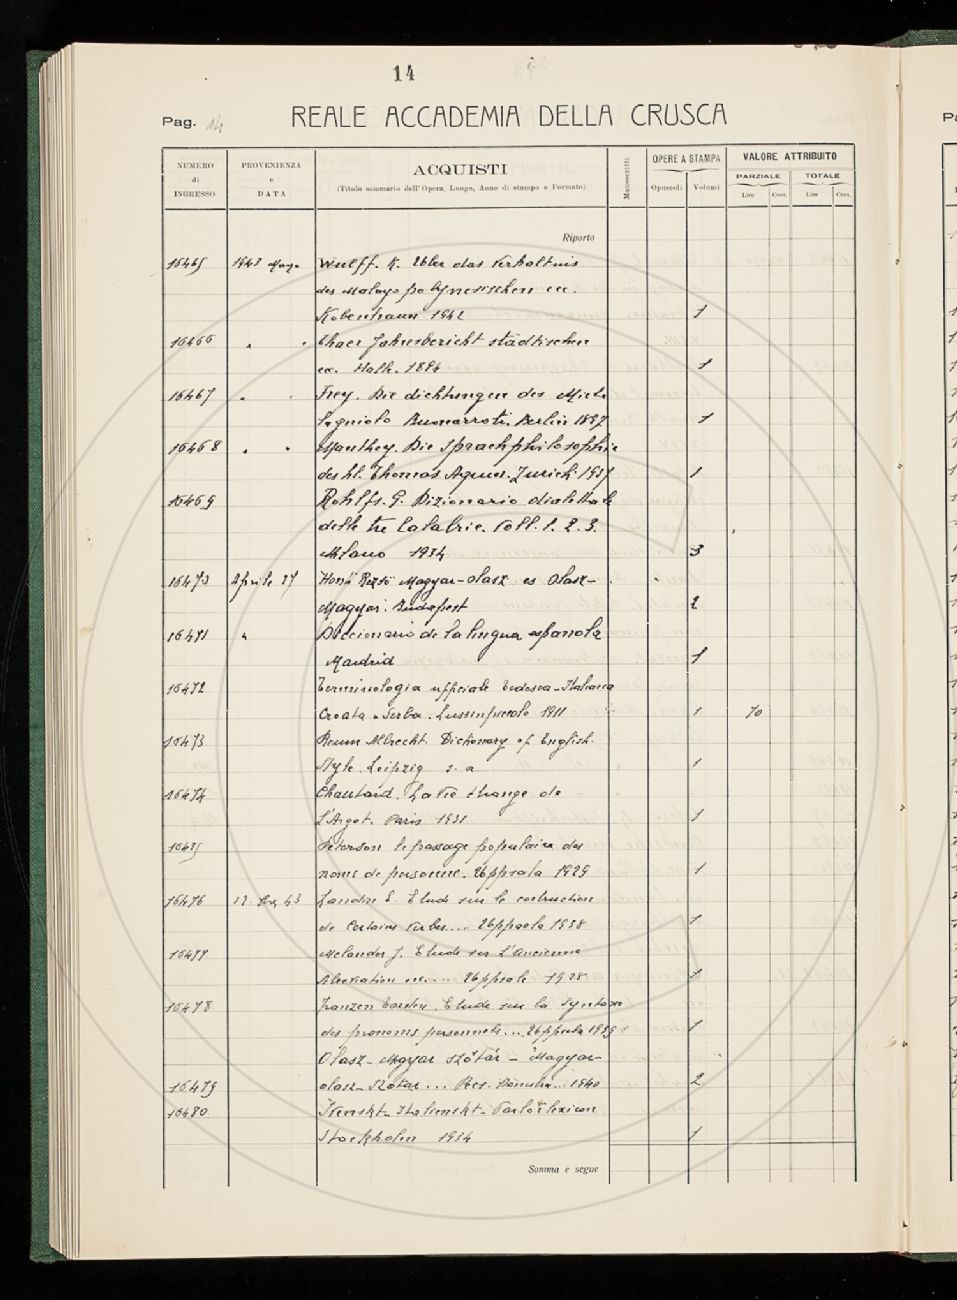 14
Pag. 14 REALE ACCADEMIA DELLA CRUSCA
NUMERO di INGRESSO
PROVENIENZA e DATA
ACQUISTI
(Titolo sommario dell'Opera, Luogo, Anno di stampa e Formato)
Manoscritti
OPERE A STAMPA
Opuscoli Volumi
VALORE ATTRIBUITO
PARZIALE TOTALE
Lire Cent. Lire Cent.
Riporto
16465 1943 Wulff. K. Über das Verhältnis
des Malayo polynesischen ecc.
Kobenhavn 1942 1
16466 " " Jahresbericht städtischen
ecc. Halle. 1894 1
16467 " " Frey. Die dichtungen des Miche
lagniolo Buonarroti. Berlin 1897 1
16468 " " Manthey. Die Sprachphilosophie
des hl. Thomas Zurich 1937 1
16469 Rohlfs. G. Dizionario dialettale
delle tre Calabrie. Voll. 1. 2. 3.
Milano 1934 3
16470 Aprile 27 Honti Rezsö Magyar-olasz es Olasz-
Magyar. Budapest 2
16471 " Diccionario de la lingua española
Madrid 1
16472 Terminologia ufficiale tedesca-Italiana
Croata e Serba. Lussinpiccolo 1911 1 70
16473 Reum Albrecht. Dictionary of English.
Style. Leipzig s. a 1
16474 Chautard. La Vie étrange de
L'Argot. Paris 1931 1
16475 Peterson le passage populaire des
noms de personne. Uppsala 1929 1
16476 43 Landin E. Etude sur le costruction
de Certains Verbes... Uppsala 1938 1
16477 Melander J. Etude sur L'Ancienne
Abreviation ecc... Uppsala 1928 1
16478 Franzen Etude sur la Syntaxe
des pronoms personnels... Uppsala 1939 1
Olasz-Magyar szótár - Magyar-
16479 olasz-Szótár... 1940 2
16480 Svenskt-Italienskt-Parlörlexicon
Stockholm 1934 1
Somma e segue